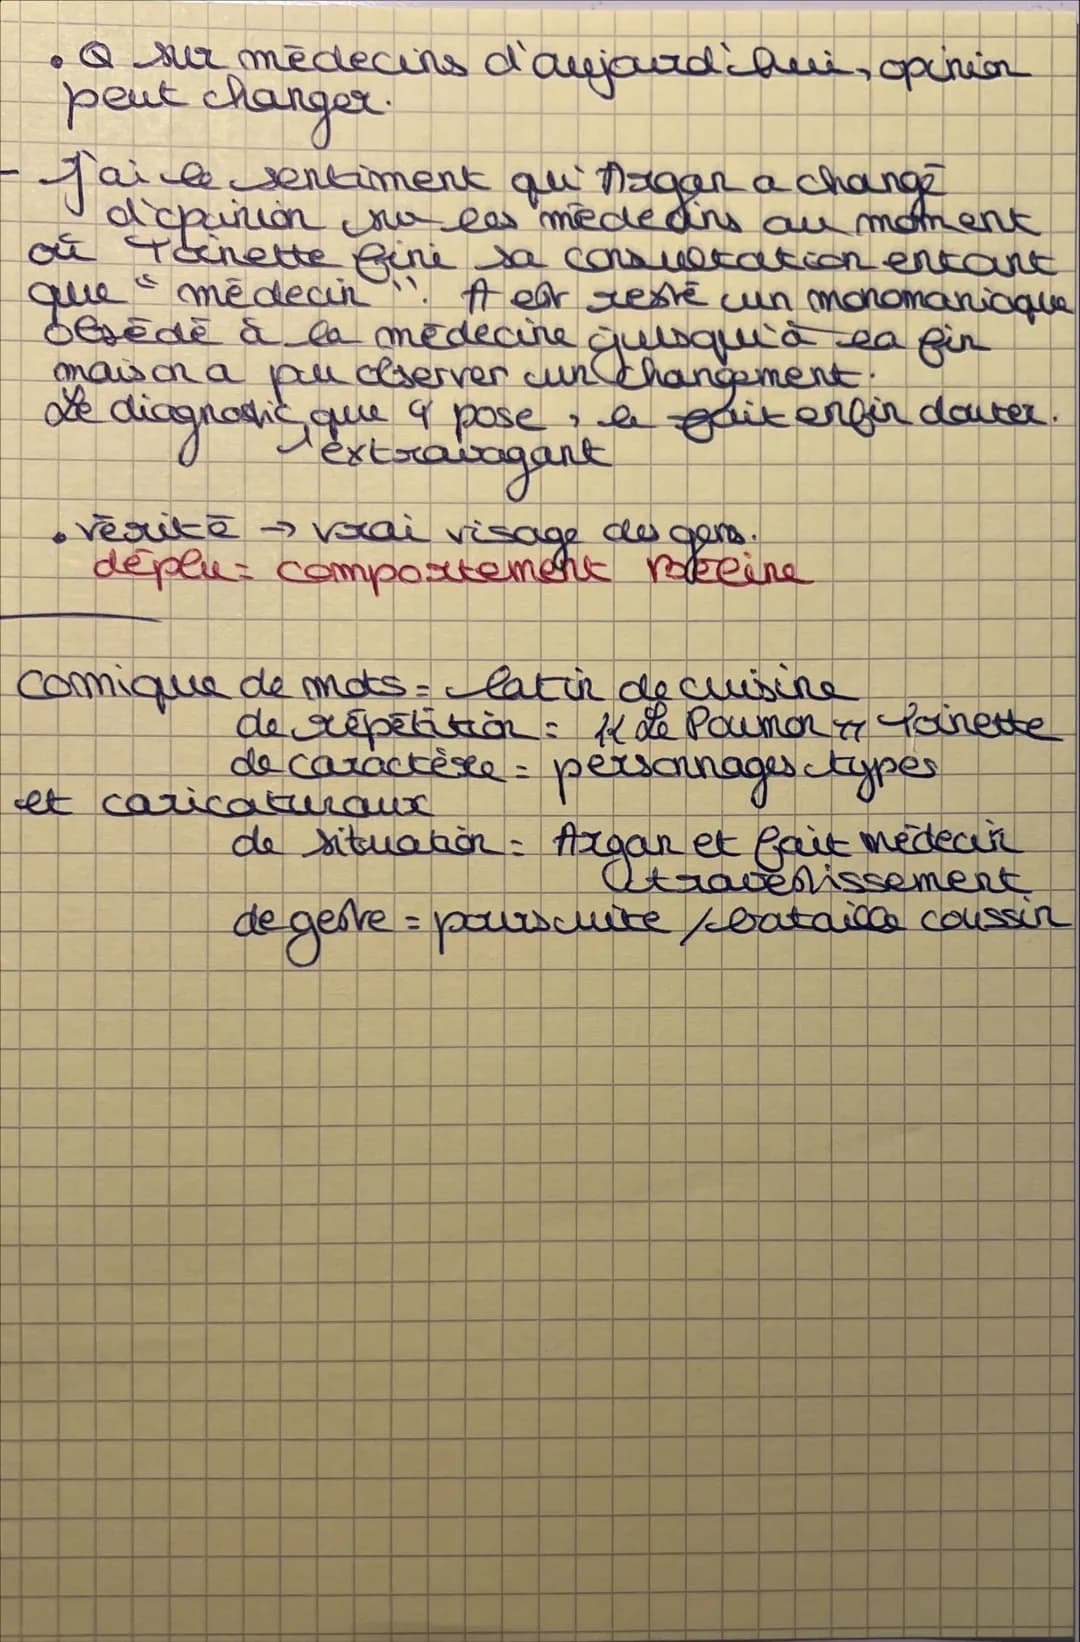 . Q sur médecins d'aujourd'hui, opinion
peut changer.
- J'ai le sentiment qu'Argan a changé
d'opinion sur les médecins au moment
où Toinette fini sa consultation entant
que " médecin ". A est resté un monomaniaque
obsédé à la médecine jusqu'à la fin
mais on a pu observer un changement.
Le diagnostic que T pose, le fait enfin douter.
extravagant
. vérité → vrai visage des gens.
déplu = comportement Béline
comique de mots = latin de cuisine
de répétition = " Le Poumon " Toinette
de caractère = personnages types
et caricaturaux
de situation = Argan et fait médecin
travestissement
de geste = poursuite / bataille coussin